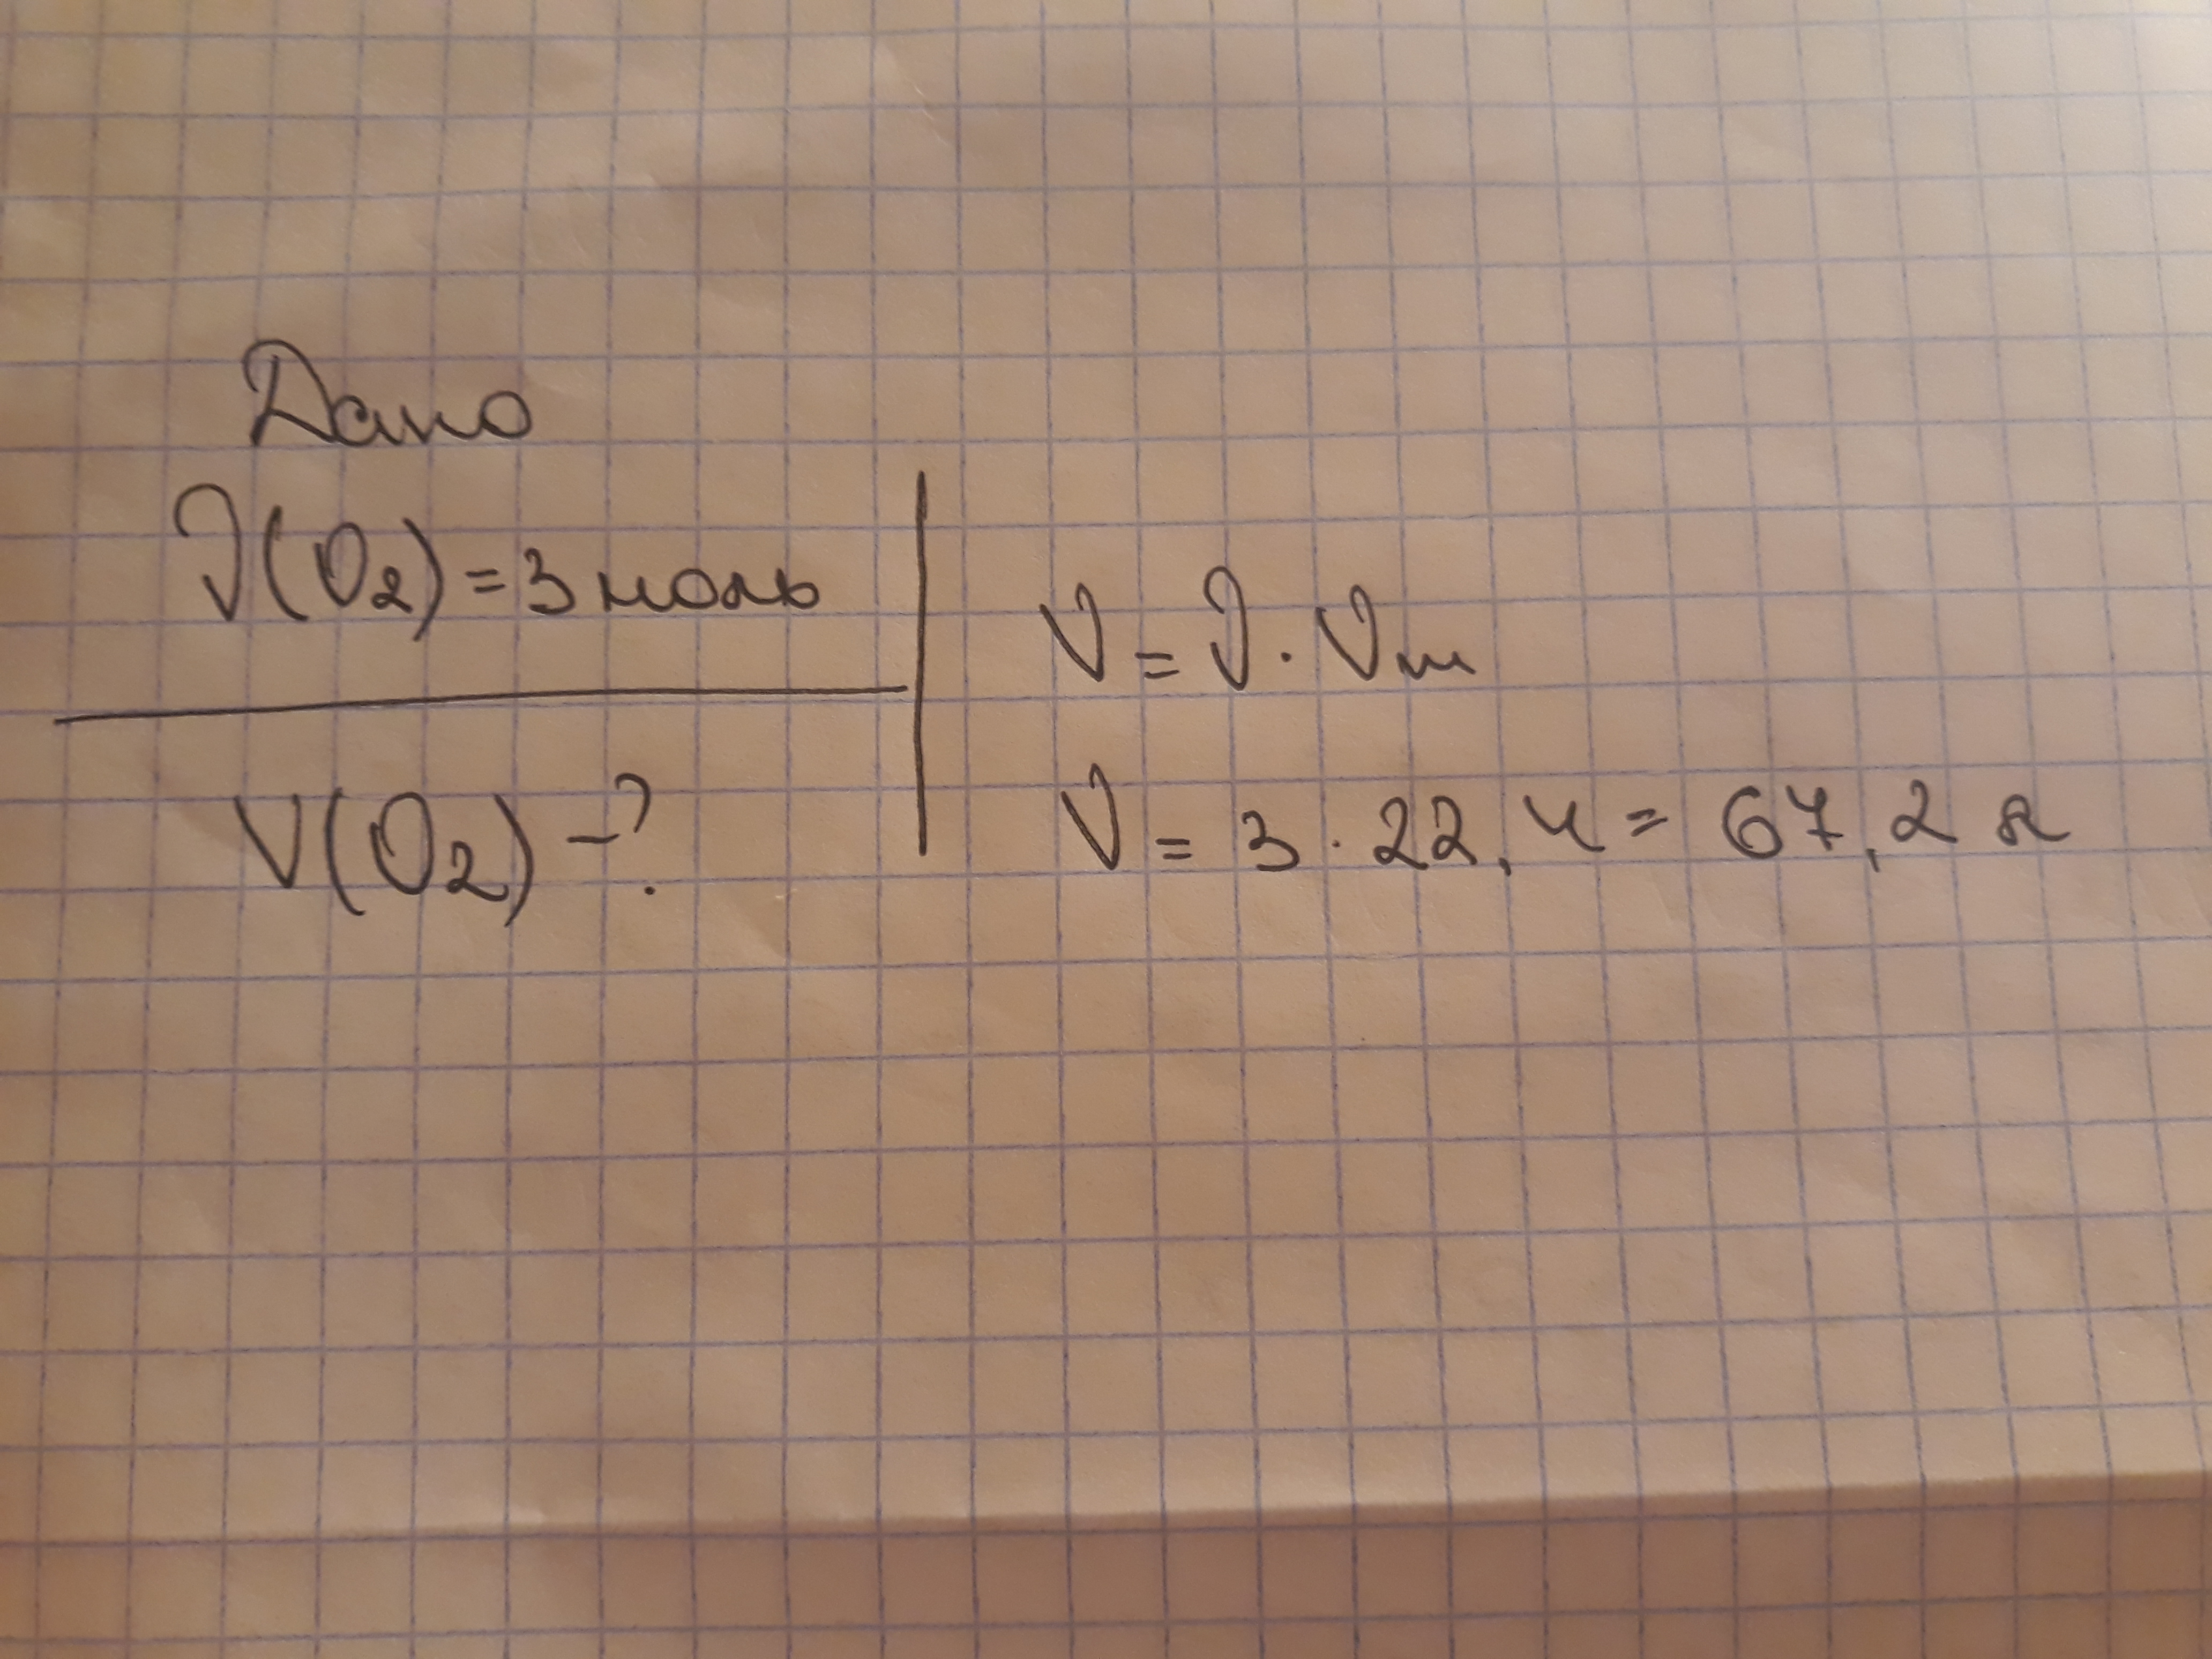 Дано
ν(O₂) = 3 моль
V(O₂) - ?
V = ν · Vm
V = 3 · 22,4 = 67,2 л